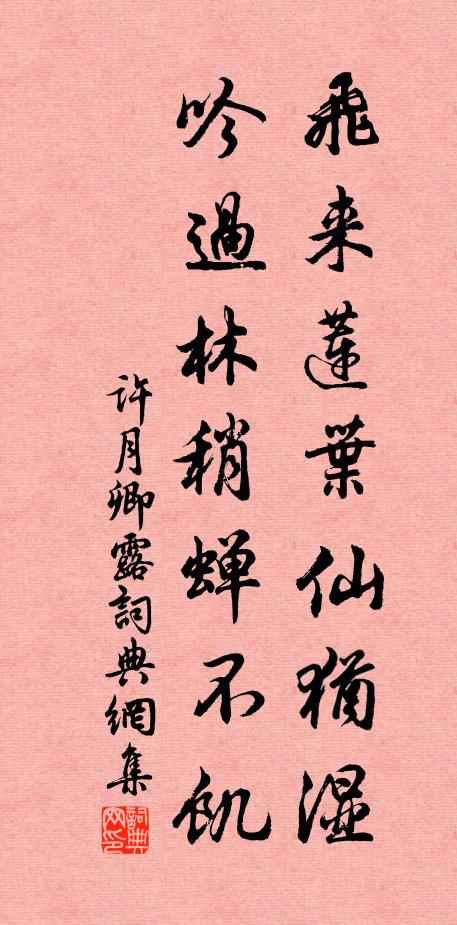 飛来蓮葉仙猶濕
吟過林稍蟬不飢
許月卿露詞典網集
詞典网印